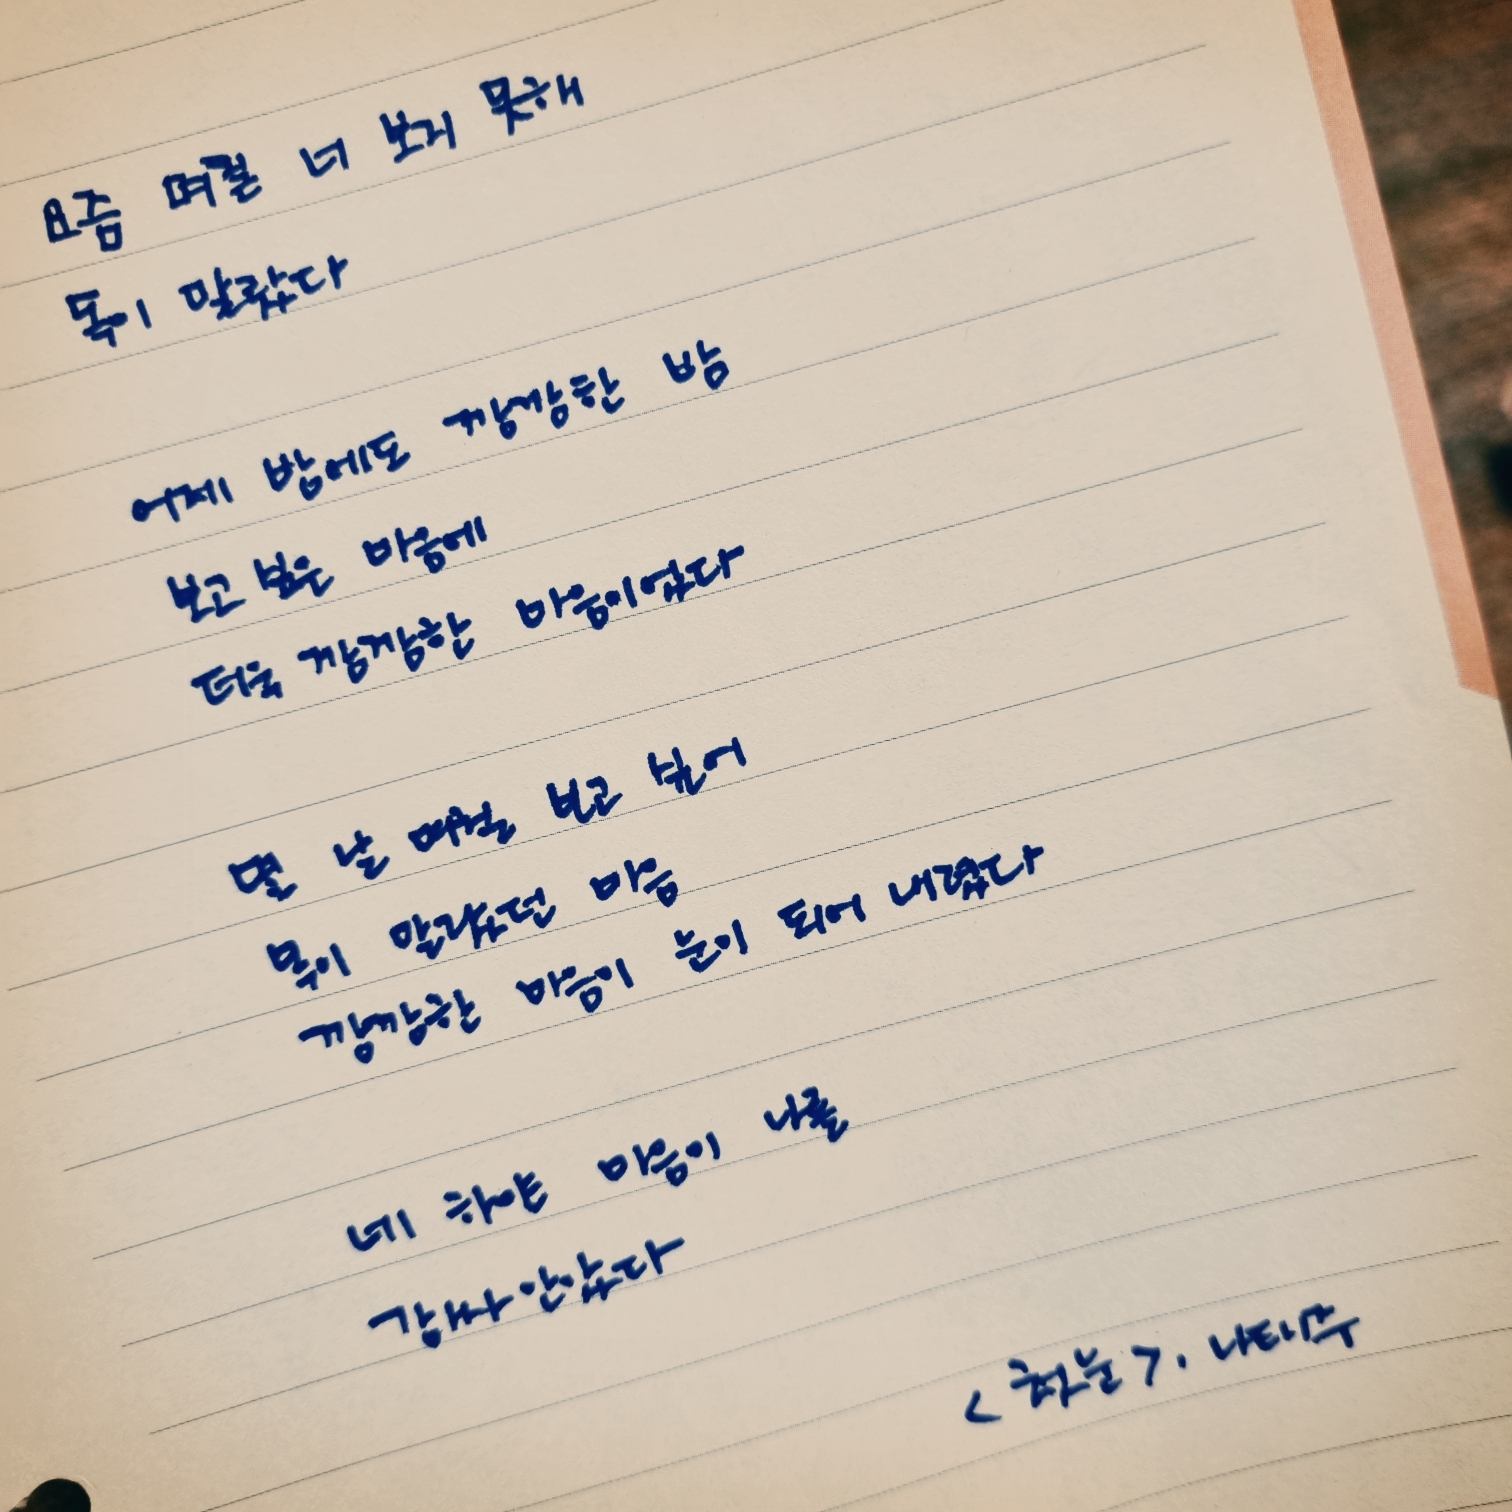 요즘 며칠 너 보지 못해
목이 말랐다
어제 밤에도 깜깜한 밤
보고 싶은 마음에
더욱 깜깜한 마음이었다
몇 날 며칠 보고 싶어
목이 말랐던 마음
깜깜한 마음이 눈이 되어 내렸다
네 하얀 마음이 나를
감싸 안았다
<첫눈>. 나태주